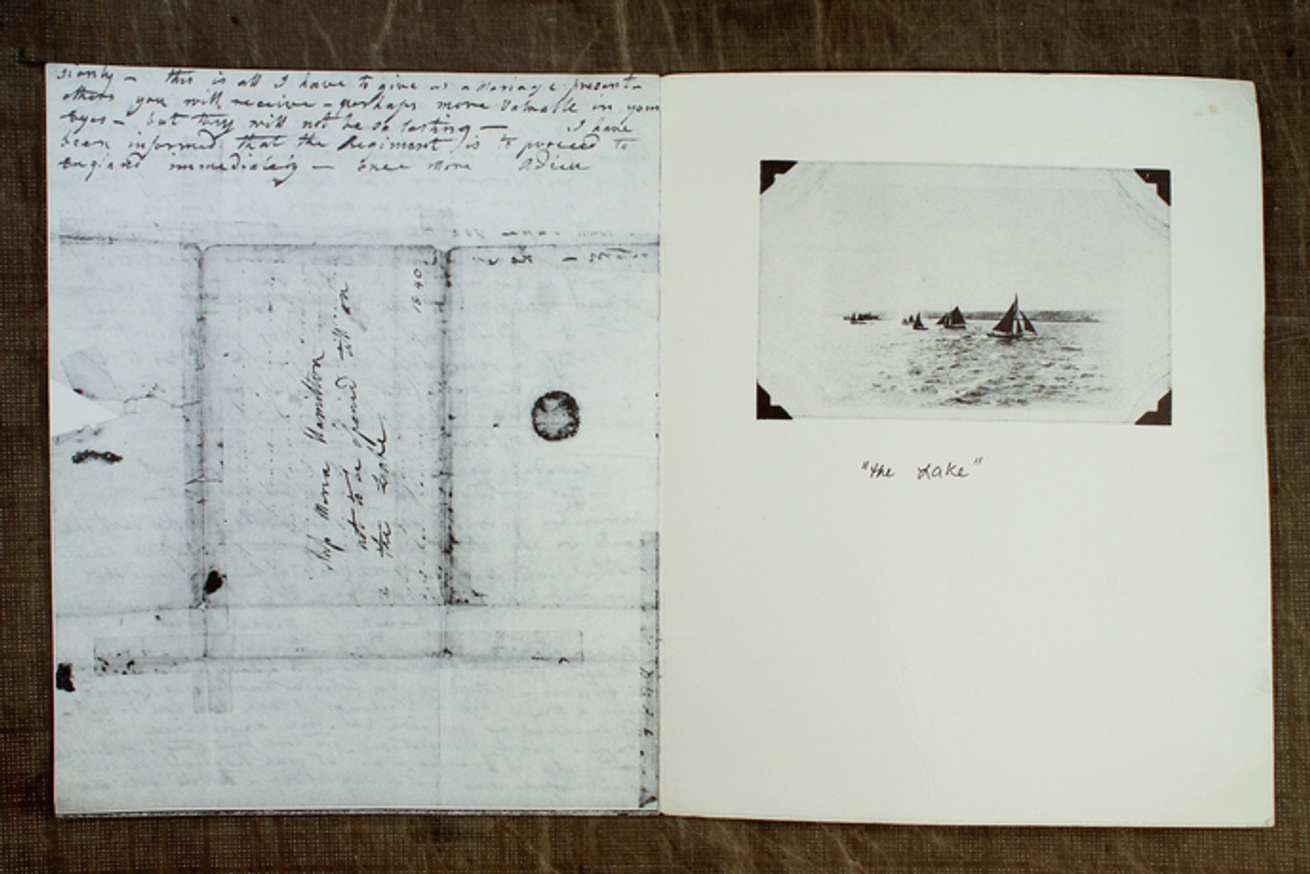 sionly - this is all I have to give as a Mariage present -
others you will receive - perhaps more Valuable in your
Eyes - but they will not be so lasting - I have
been informed that the Regiment is to proceed to
England immediately - Once More Adieu
Miss Maria Hamilton
not to be opened till on
the Lake
1840
"the Lake"